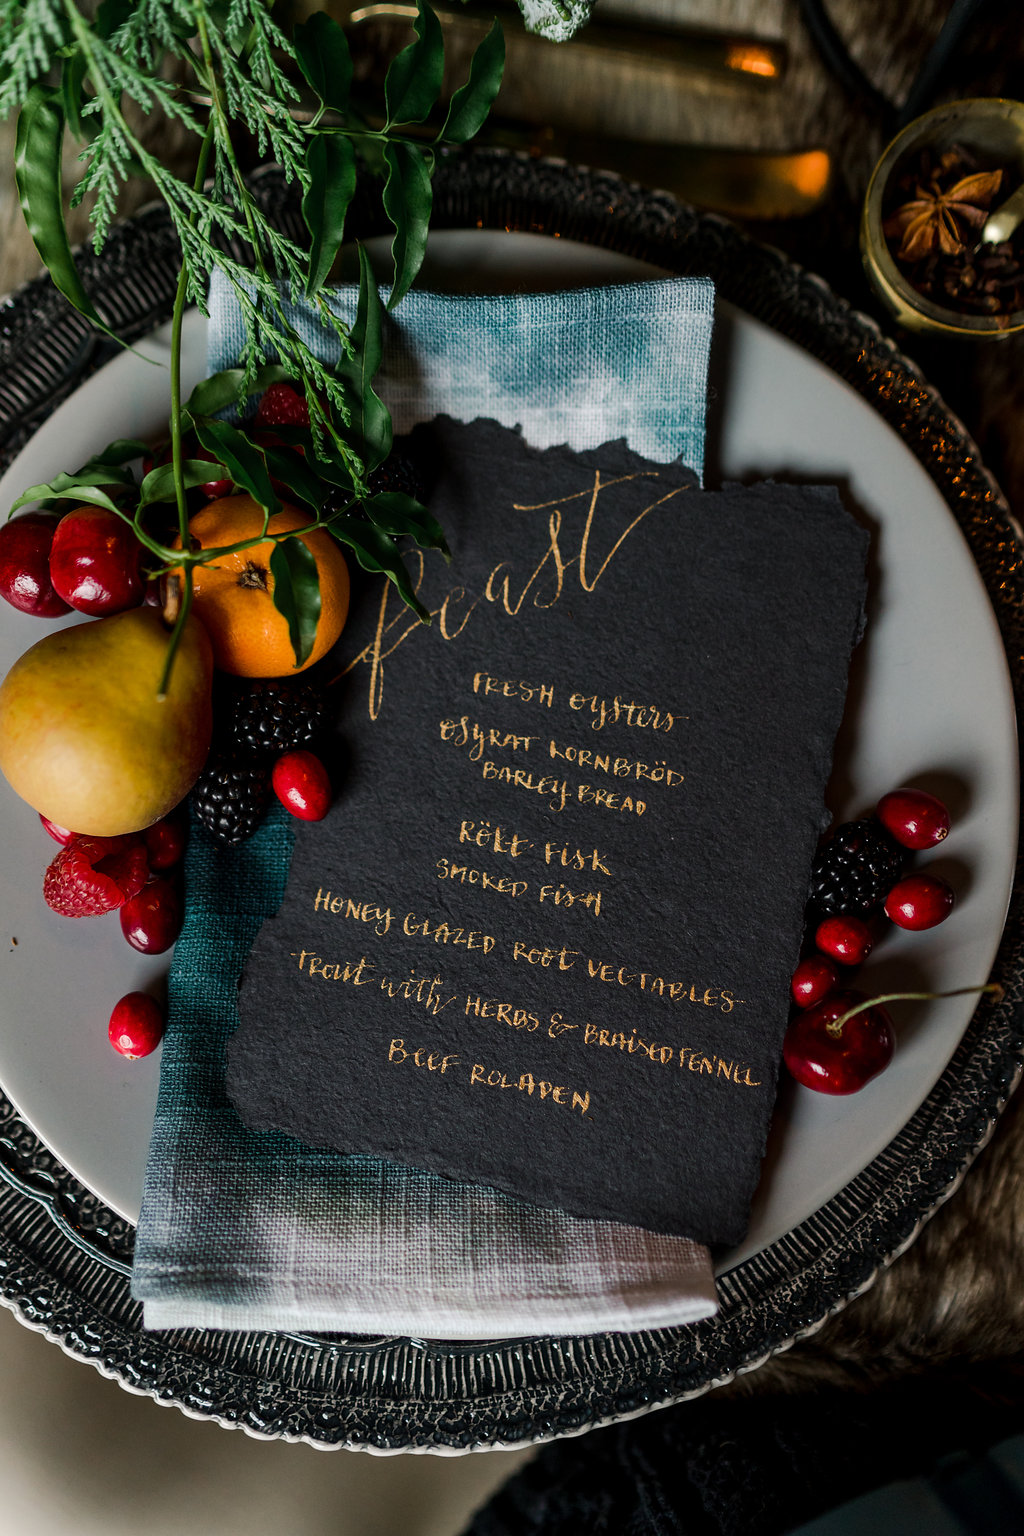 feast
FRESH OYSTERS
OSYRAT KORNBRÖD
BARLEY BREAD
RÖKT FISK
SMOKED FISH
HONEY GLAZED ROOT VEGTABLES
TROUT with HERBS & BRAISED FENNEL
BEEF ROLADEN